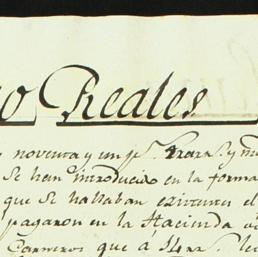 o Reales
noventa y un p.s
Se han introducido en la forma
que se hallaban existentes el
pagaron en la Hacienda
Carneros que a